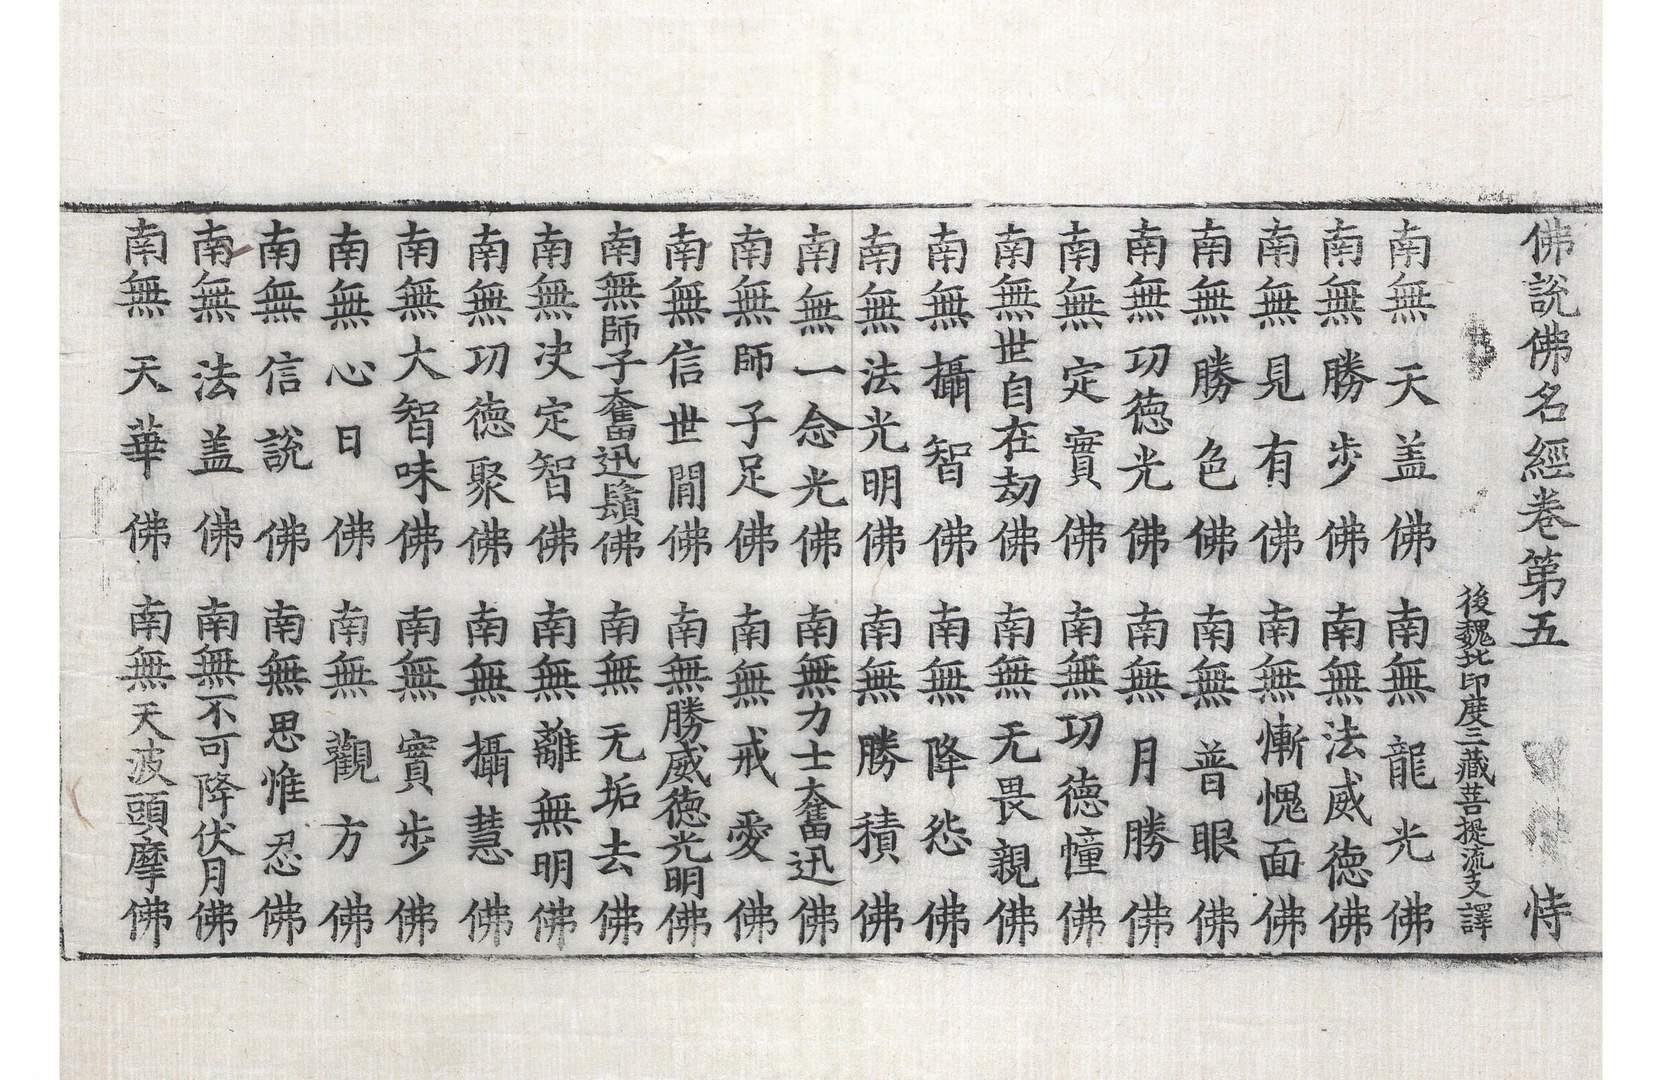 佛說佛名經卷第五 恃
後魏北印度三藏菩提流支譯
南無天盖佛 南無龍光佛
南無勝步佛 南無法威德佛
南無見有佛 南無慚愧面佛
南無勝色佛 南無普眼佛
南無功德光佛 南無月勝佛
南無定實佛 南無功德幢佛
南無世自在劫佛 南無无畏親佛
南無攝智佛 南無降怨佛
南無法光明佛 南無勝積佛
南無一念光佛 南無力士奮迅佛
南無師子足佛 南無戒愛佛
南無信世間佛 南無勝威德光明佛
南無師子奮迅鬚佛 南無无垢去佛
南無決定智佛 南無離無明佛
南無功德聚佛 南無攝慧佛
南無大智味佛 南無實步佛
南無心日佛 南無觀方佛
南無信說佛 南無思惟忍佛
南無法盖佛 南無不可降伏月佛
南無天華佛 南無天波頭摩佛